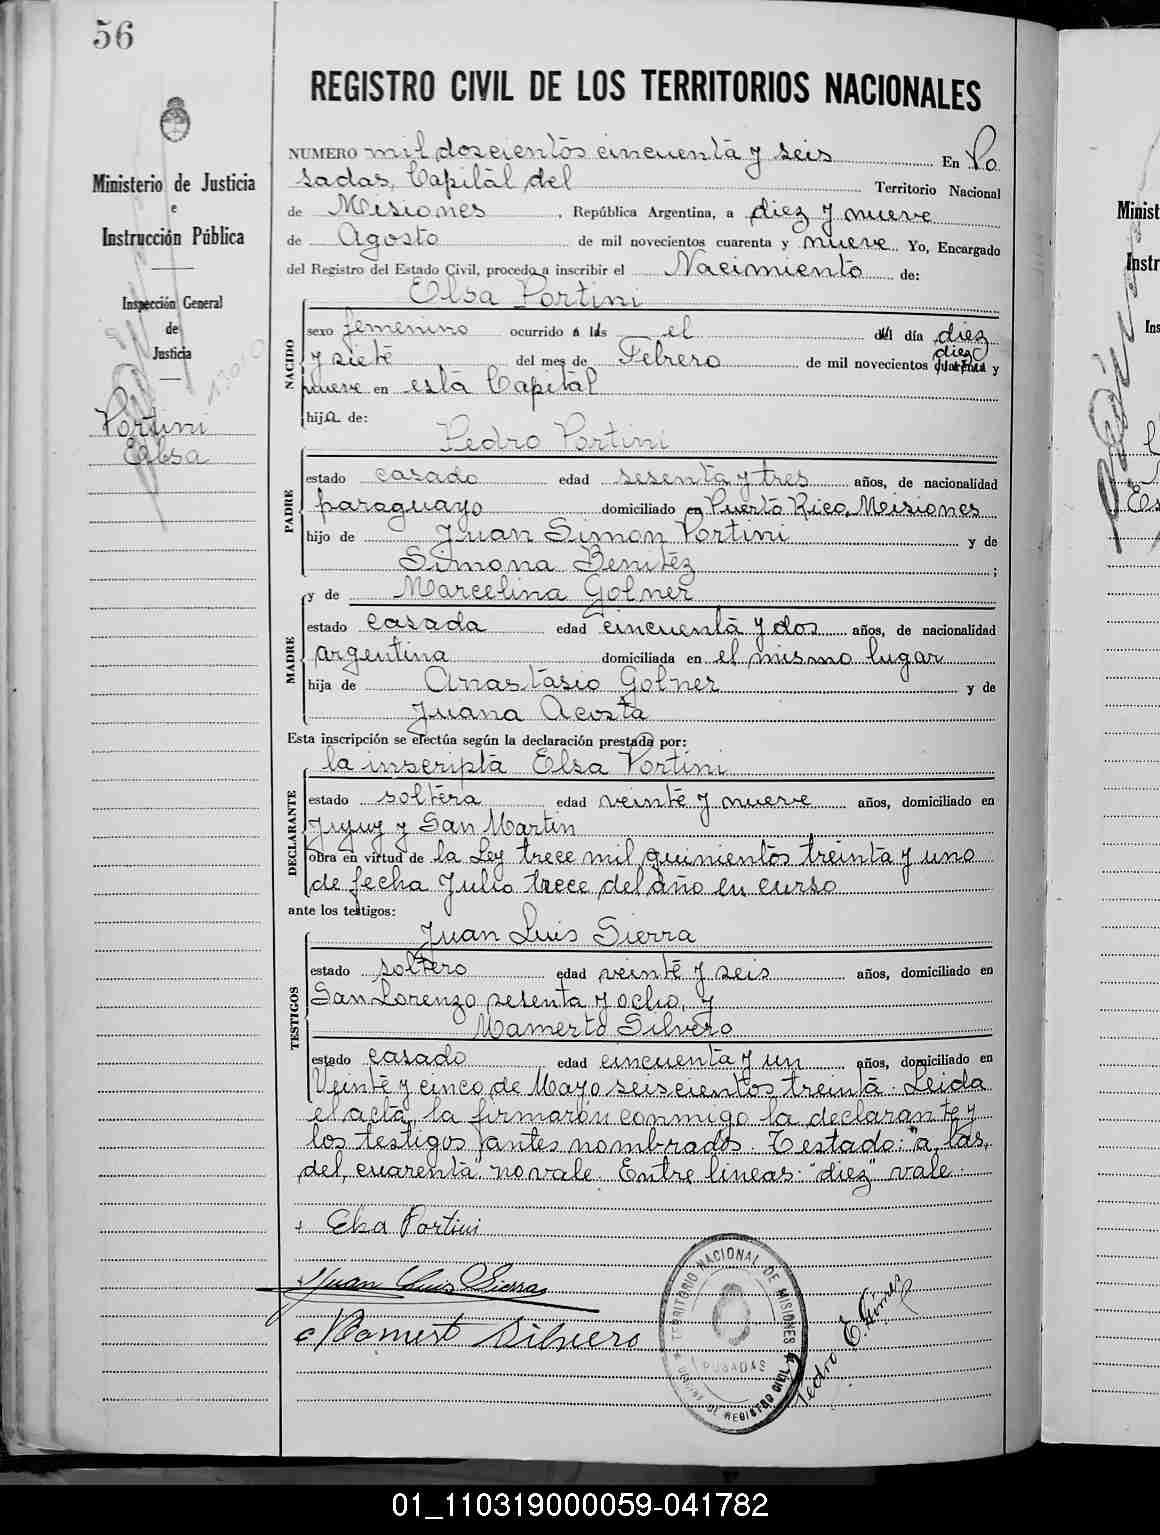 56
REGISTRO CIVIL DE LOS TERRITORIOS NACIONALES
Ministerio de Justicia
e
Instrucción Pública
Inspección General
de
Justicia
Portini
Elsa
NUMERO mil doscientos cincuenta y seis En Po
sadas, Capital del Territorio Nacional
de Misiones, República Argentina, a diez y nueve
de Agosto de mil novecientos cuarenta y nueve Yo, Encargado
del Registro del Estado Civil, procedo a inscribir el Nacimiento de:
Elsa Portini
NACIDO
sexo femenino ocurrido a las el del día diez
y siete del mes de Febrero de mil novecientos cuarenta y
diez
nueve en esta Capital
hija de:
Pedro Portini
PADRE
estado casado edad sesenta y tres años, de nacionalidad
paraguayo domiciliado en Puerto Rico, Misiones
hijo de Juan Simon Portini y de
Simona Benitez ;
y de Marcelina Golner
MADRE
estado casada edad cincuenta y dos años, de nacionalidad
argentina domiciliada en el mismo lugar
hija de Anastasio Golner y de
Juana Acosta
Esta inscripción se efectúa según la declaración prestada por:
la inscripta Elsa Portini
DECLARANTE
estado soltera edad veinte y nueve años, domiciliado en
Jujuy y San Martin
obra en virtud de la Ley trece mil quinientos treinta y uno
de fecha Julio trece del año en curso
ante los testigos:
Juan Luis Sierra
TESTIGOS
estado soltero edad veinte y seis años, domiciliado en
San Lorenzo sesenta y ocho, y
Mamerto Silvero
estado casado edad cincuenta y un años, domiciliado en
Veinte y cinco de Mayo seiscientos treinta. Leida
el acta, la firmaron conmigo la declarante y
los testigos antes nombrados. Testado: "a las,
del, cuarenta no vale. Entre lineas: "diez" vale.
Elsa Portini
Juan Luis Sierra
Mamerto Silvero
TERRITORIO NACIONAL DE MISIONES
POSADAS
OFICINA DE REGISTRO CIVIL
Pedro E. Gimenez
Minist
Instr
Ins
01_110319000059-041782